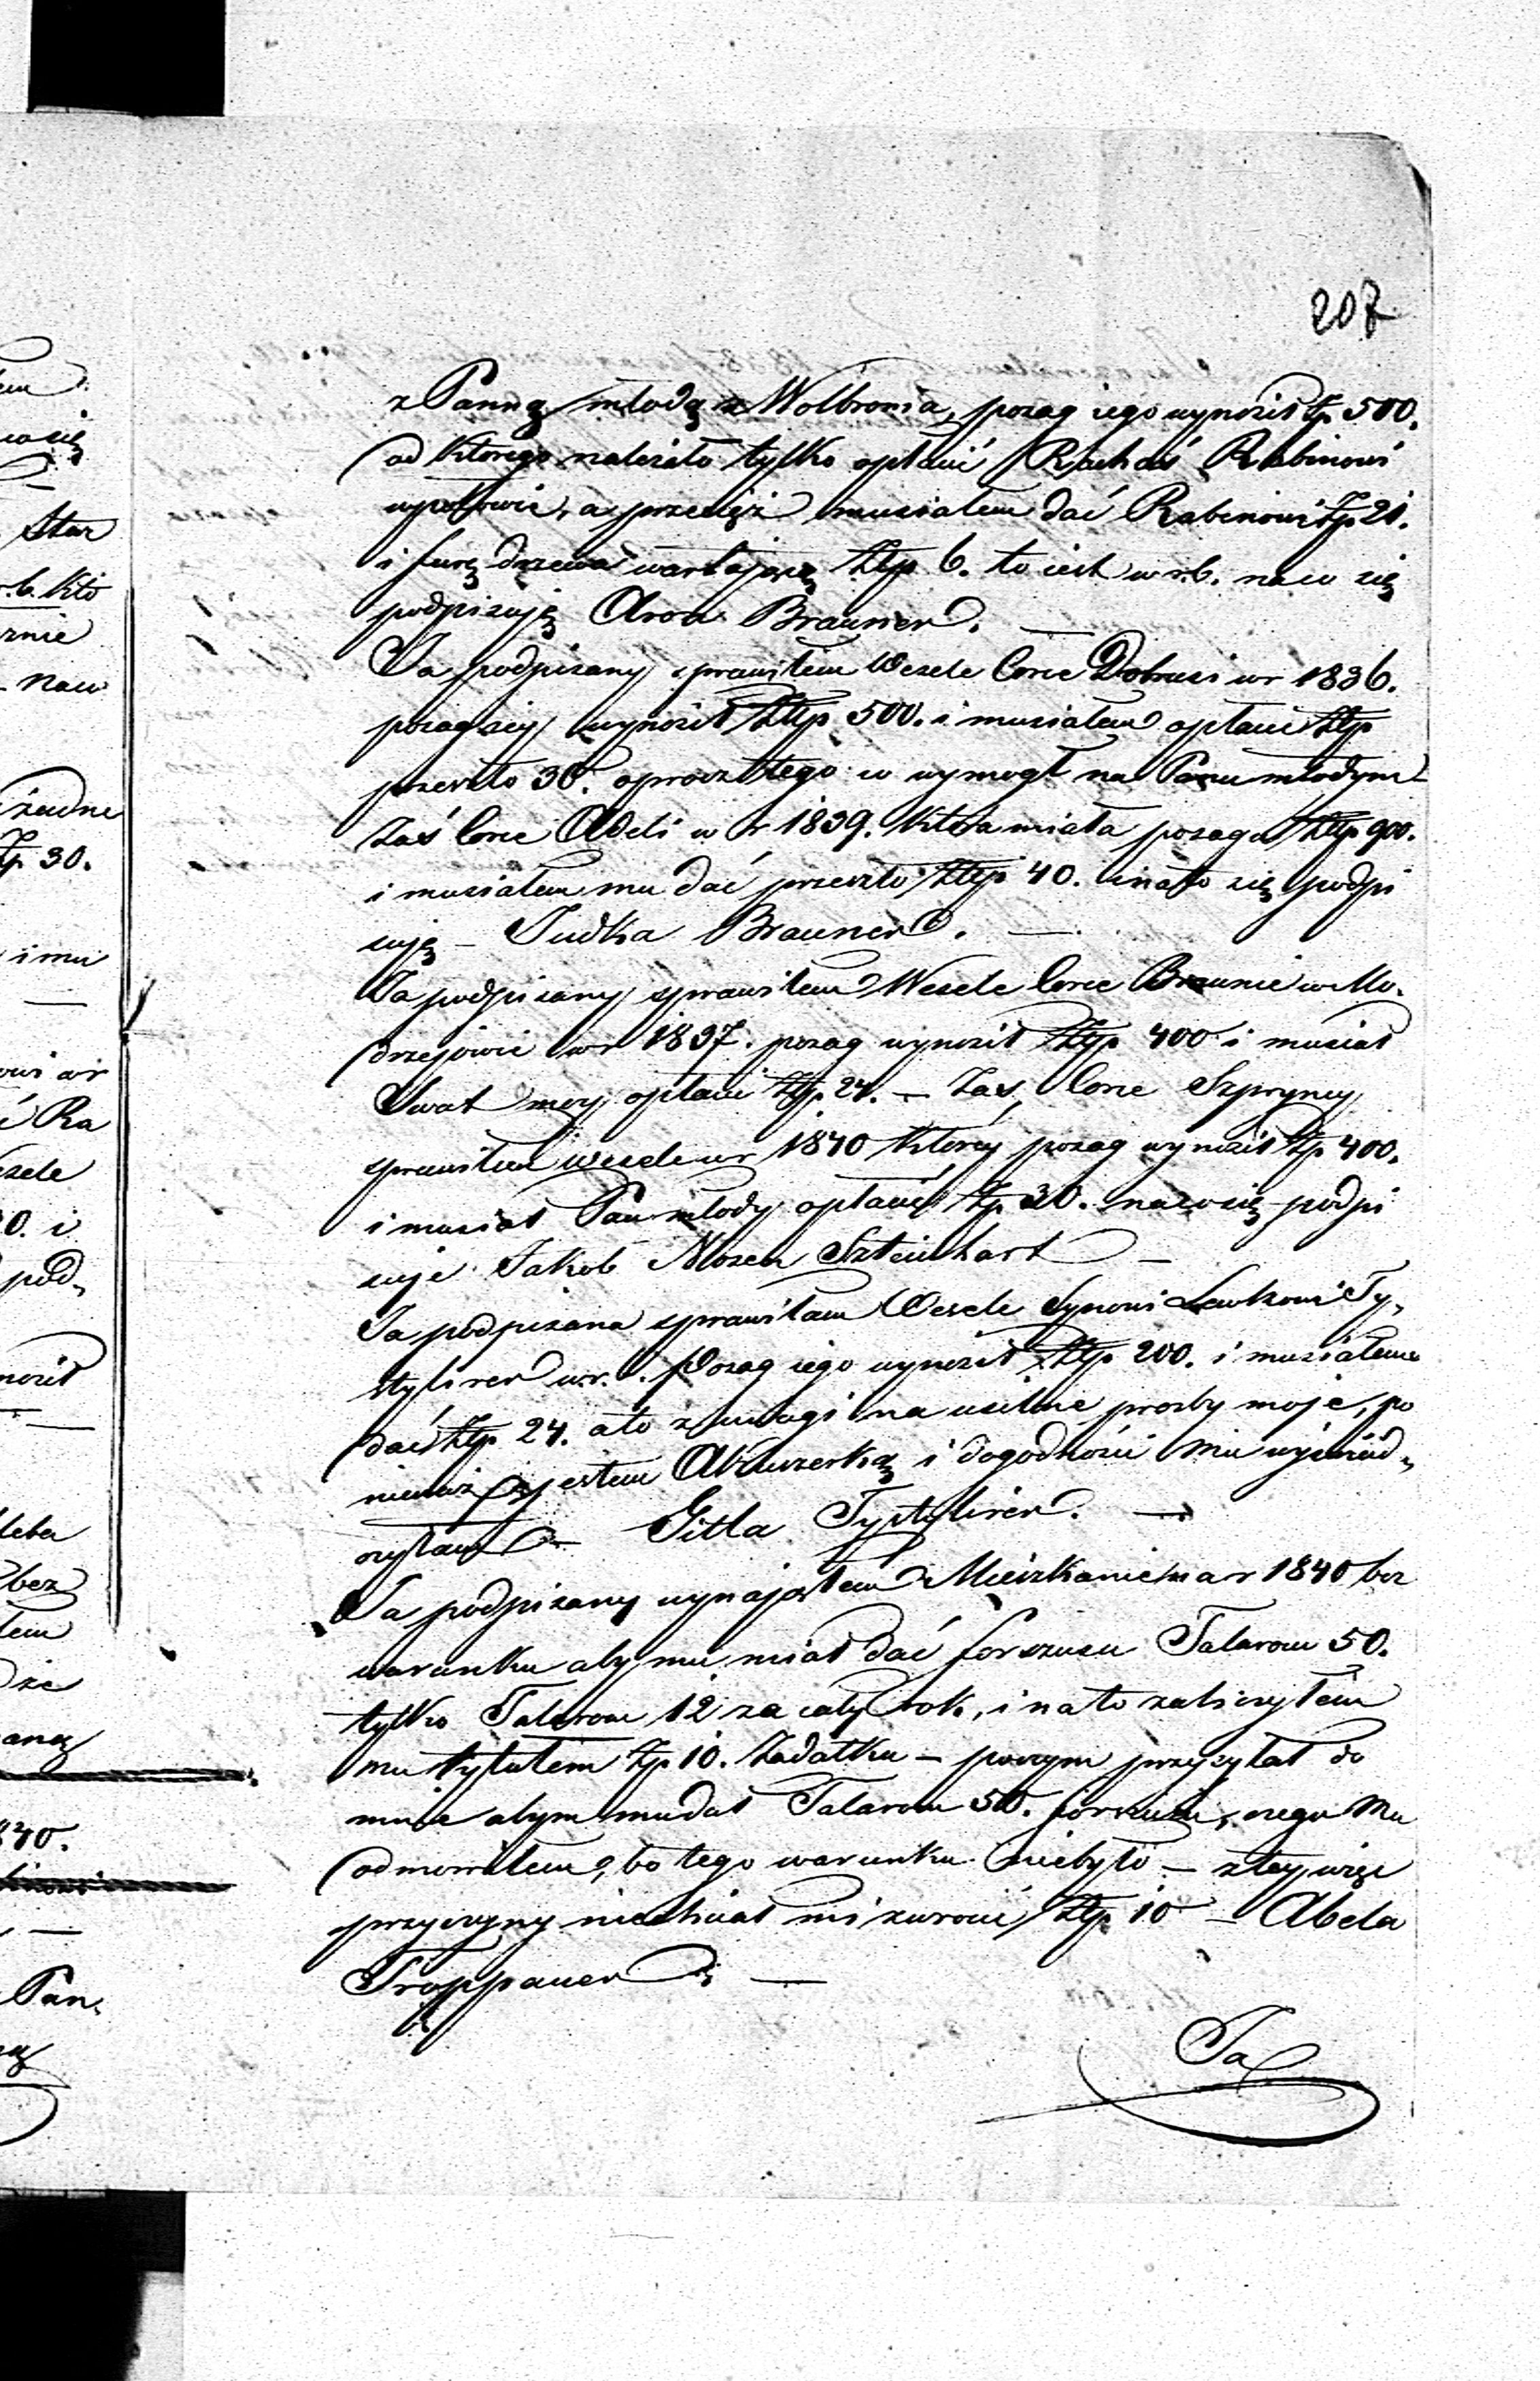 207
z Panną młodą z Wolbromia, posag iego wynosił Zp. 500.
od którego należało tylko opłacić Rachaś Rabinowi
wpołowie, a przecięż musiałem dać Rabinowi Zp 21.
i furę drzewa wartającą Złp 6. to iest w r.b. naco się
podpisuję Aron Brauner. —
Ja podpisany sprawiłem Wesele Corce Dobrusi w r 1836.
posag iey wynosił Złp 500. i musiałem opłacić Złp
przeszło 30. oprocz tego co wymogł na Panu młodym
Zaś Corce Adeli w r 1839. która miała posagu Złp 900.
i musiałem mu dać przeszło Złp 40. i na to się podpi
suję — Judka Brauner. —
Ja podpisany sprawiłem Wesele Corce Braunie w Mo„
drzejowie w r 1837. posag wynosił Złp 400 i musiał
Swat moy opłacić Złp. 24. — Zaś Corce Szpryncy
sprawiłem wesele w r 1840 którey posag wynosił Zp 400.
i musiał Pan młody opłacić Zp 30. naco się podpi
suje Jakob Mosen Szteinhart —
Ja podpisana sprawiłam Wesele Synowi Lewkowi Ty„
stylirer w r. b. Posag iego wynosił Złp 200. i musiałam
dać Złp 24. a to z uwagi na usilne prosby moje, po
nieważ jestem Akuszerką i dogodności mu wyświad„
czyłam — Gitla Tystylirer. —
Ja podpisany wynająłem Mieszkanie na r 1840 bez
warunku aby mu miał dać forszusu Talarow 50.
tylko Talarow 12 za cały rok, i na to zaliczyłem
mu tytułem Zp 10. Zadatku — poczym przysyłał do
mnie abym mu dał Talarow 50. forszusu, czego mu
odmowiłem, bo tego warunku niebyło — z tey więc
przyczyny niechciał mi zwrocić Złp 10 — Abela
Troppauer —
Ja